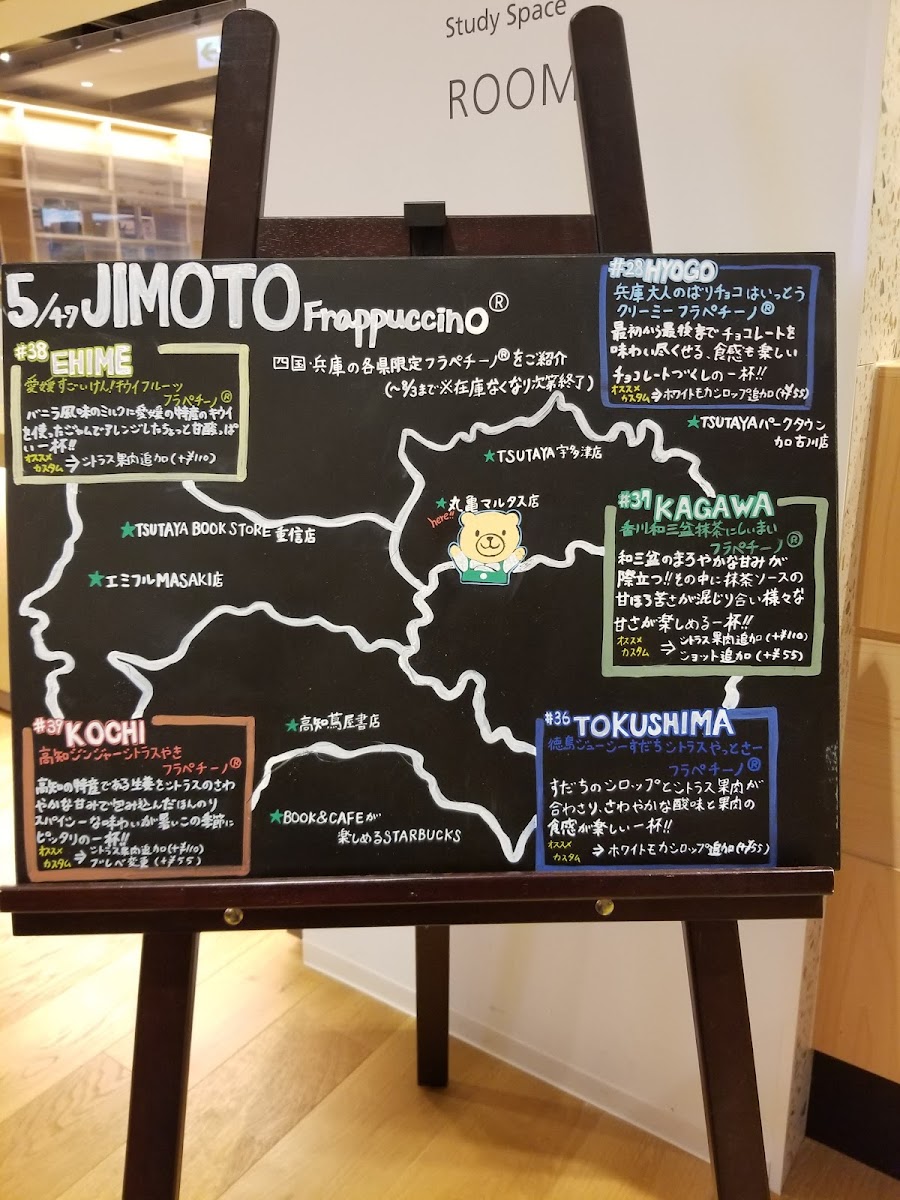 Study Space
ROOM
5/47 JIMOTO Frappuccino®
四国・兵庫の各県限定フラペチーノ®をご紹介
(~8/3まで※在庫なくなり次第終了)
#28 HYOGO
兵庫 大人のばりチョコ はいっとう
クリーミー フラペチーノ®
最初から最後までチョコレートを
味わい尽くせる、食感も楽しい
チョコレートづくしの一杯!!
オススメ
カスタム
→ホワイトモカシロップ追加(+¥55)
#38 EHIME
愛媛 すごいけん!キウイフルーツ
フラペチーノ®
バニラ風味のミルクに愛媛の特産のキウイ
を使ったごほんでアレンジしたちょっと甘酸っぱ
い一杯!!
オススメ
カスタム
→シトラス果肉追加(+¥110)
★TSUTAYAパークタウン
加古川店
★TSUTAYA宇多津店
★丸亀マルタス店
here!!
★TSUTAYA BOOK STORE 重信店
★エミフルMASAKI店
#37 KAGAWA
香川 和三盆 抹茶にしぃまい
フラペチーノ®
和三盆のまろやかな甘みが
際立つ!!その中に抹茶ソースの
甘ほろ苦さが混じり合い様々な
甘さが楽しめる一杯!!
オススメ
カスタム
→シトラス果肉追加(+¥110)
ショット追加(+¥55)
#39 KOCHI
高知 ジンジャーシトラスやき
フラペチーノ®
高知の特産である生姜をシトラスのさわ
やかな甘みで包み込んだほんのり
スパイシーな味わいが暑いこの季節に
ピッタリの一杯!!
オススメ
カスタム
→シトラス果肉追加(+¥110)
ブレベ変更(+¥55)
★高知蔦屋書店
★BOOK&CAFEが
楽しめるSTARBUCKS
#36 TOKUSHIMA
徳島 ジューシーすだち シトラス やっとさー
フラペチーノ®
すだちのシロップとシトラス果肉が
合わさり、さわやかな酸味と果肉の
食感が楽しい一杯!!
オススメ
カスタム
→ホワイトモカシロップ追加(+¥55)